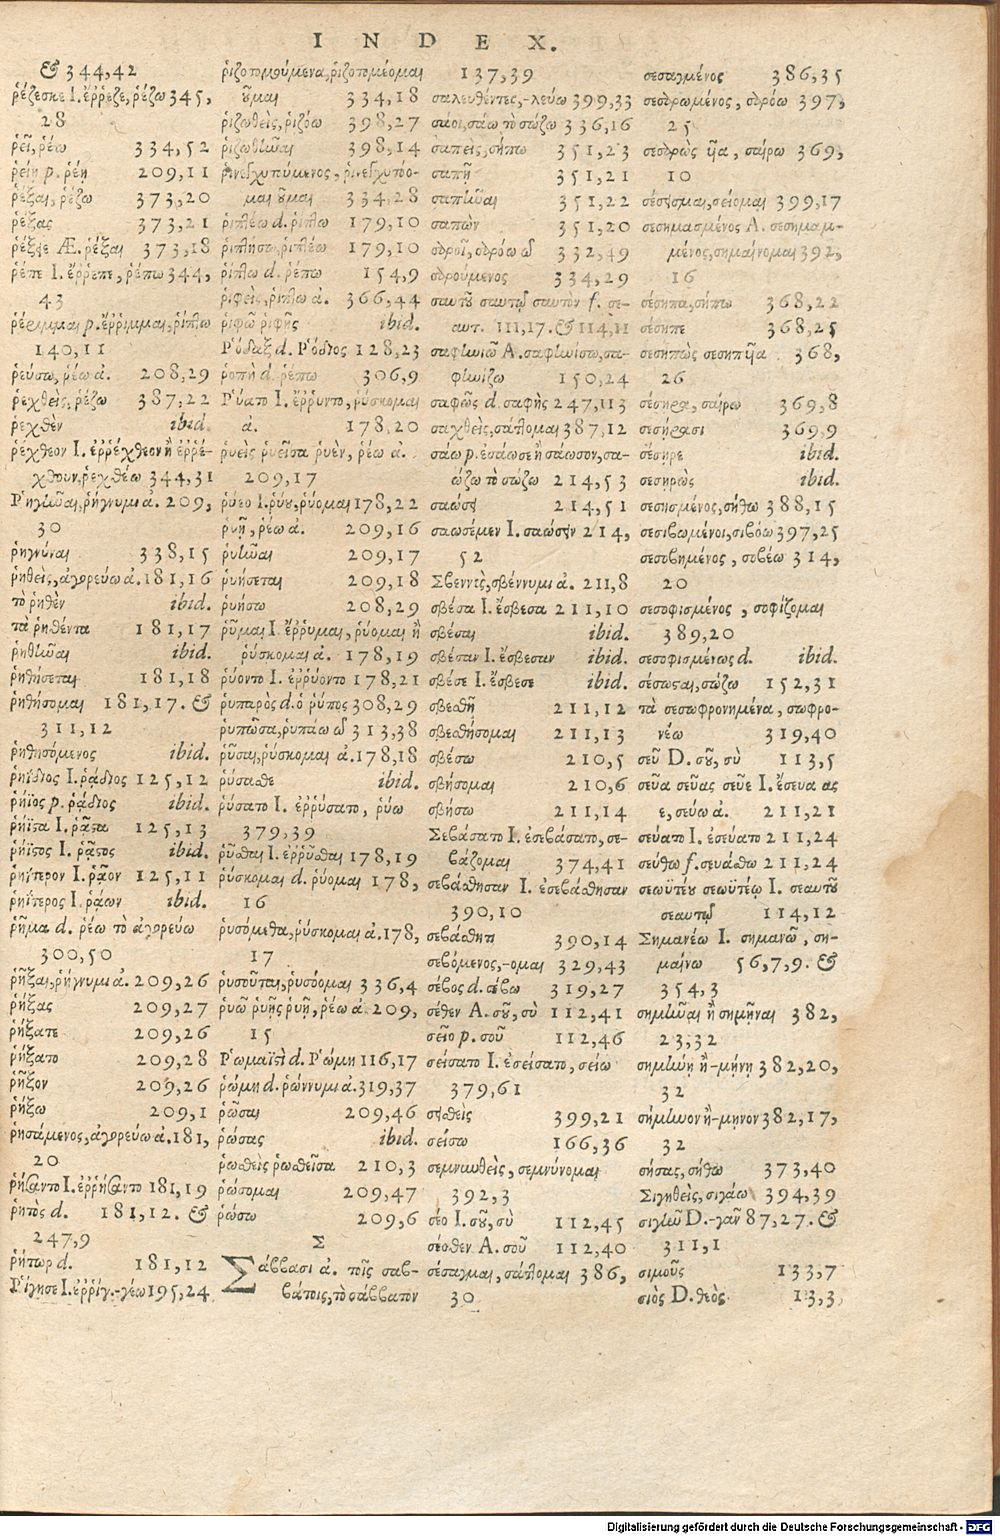 INDEX.
& 344,42
ῥέζεσκε I. ἔῤῥεζε, ῥέζω 345,
28
ῥεῖ, ῥέω 334,52
ῥείη p. ῥέη 209,11
ῥέξαι, ῥέζω 373,20
ῥέξας 373,21
ῥέξειε Æ. ῥέξαι 373,18
ῥέπε I. ἔῤῥεπε, ῥέπω 344,
43
p. ἔῤῥιμμαι, ῥίπτω
140,11
ῥεύσω, ῥέω ἀ. 208,29
ῥεχθεὶς, ῥέζω 387,22
ῥεχθὲν ibid.
ῥέχθεον I. ἐῤῥέχθεον ἢ ἐῤῥέ-
χθουν, ῥεχθέω 344,31
Ῥηγῆναι, ῥήγνυμι ἀ. 209,
30
ῥηγνύναι 338,15
ῥηθεὶς, ἀγορεύω ἀ. 181,16
τὸ ῥηθὲν ibid.
τὰ ῥηθέντα 181,17
ῥηθῆναι ibid.
ῥηθήσεται 181,18
ῥηθήσομαι 181,17. &
311,12
ῥηθησόμενος ibid.
ῥηΐδιος I. ῥᾴδιος 125,12
ῥήϊος p. ῥᾴδιος ibid.
ῥήϊστα I. ῥᾷστα 125,13
ῥήϊστος I. ῥᾷστος ibid.
ῥηΐτερον I. ῥᾷον 125,11
ῥηΐτερος I. ῥᾴων ibid.
ῥῆμα d. ῥέω τὸ ἀγορεύω
300,50
ῥῆξαι, ῥήγνυμι ἀ. 209,26
ῥήξας 209,27
ῥήξατε 209,26
ῥήξατο 209,28
ῥῆξον 209,26
ῥήξω 209,1
ῥησάμενος, ἀγορεύω ἀ. 181,
20
ῥήσαντο I. ἐῤῥήσαντο 181,19
ῥητὸς d. 181,12. &
247,9
ῥήτωρ d. 181,12
Ῥίγησε I. ἐῤῥίγ.-γέω 195,24
ῥιζοτομούμενα, ῥιζοτομέομαι
οῦμαι 334,18
ῥιζωθεὶς, ῥιζόω 398,27
ῥιζωθῆναι 398,14
μαι οῦμαι 334,28
ῥιπτέω d. ῥίπτω 179,10
ῥιπτήσω, ῥιπτέω 179,10
ῥίπτω d. ῥέπω 154,9
ῥιφεὶς, ῥίπτω ἀ. 366,44
ῥιφῶ ῥιφῇς ibid.
Ῥόδαξ d. Ῥόδιος 128,23
ῥοπὴ d. ῥέπω 306,9
Ῥύατο I. ἐῤῥυντο, ῥύσκομαι
ἀ. 178,20
ῥυεὶς ῥυεῖσα ῥυὲν, ῥέω ἀ.
209,17
ῥύεο I. ῥύου, ῥύομαι 178,22
ῥυῇ, ῥέω ἀ. 209,16
ῥυῆναι 209,17
ῥυήσεται 209,18
ῥυήσω 208,29
ῥῦμαι I. ἔῤῥυμαι, ῥύομαι ἢ
ῥύσκομαι ἀ. 178,19
ῥύοντο I. ἐῤῥύοντο 178,21
ῥυπαρὸς d. ὁ ῥύπος 308,29
ῥυπῶσα, ῥυπάω ῶ 313,38
ῥῦσαι, ῥύσκομαι ἀ. 178,18
ῥύσασθε ibid.
ῥύσατο I. ἐῤῥύσατο, ῥύω
379,39
ῥῦσθαι I. ἐῤῥῦσθαι 178,19
ῥύσκομαι d. ῥύομαι 178,
16
ῥυσόμεθα, ῥύσκομαι ἀ. 178,
17
ῥυσοῦται, ῥυσόομαι 336,4
ῥυῶ ῥυῇς ῥυῇ, ῥέω ἀ. 209,
15
Ῥωμαϊστὶ d. Ῥώμη 116,17
ῥώμη d. ῥώννυμι ἀ. 319,37
ῥῶσαι 209,46
ῥώσας ibid.
ῥωσθεὶς ῥωσθεῖσα 210,3
ῥώσομαι 209,47
ῥώσω 209,6
Σ
Σάββασι ἀ. τοῖς σαβ-
βάτοις, τὸ σάββατον
137,39
σαλευθέντες,-λεύω 399,33
σάοι, σάω τὸ σώζω 336,16
σαπεὶς, σήπω 351,23
σαπῇ 351,21
σαπῆναι 351,22
σαπὼν 351,20
σαροῖ, σαρόω ῶ 332,49
σαρούμενος 334,29
σαυτοῦ σαυτῷ σαυτὸν f. σε-
αυτ. 111,17. & 114,11
σαφηνιῶ A. σαφηνίσω, σα-
φηνίζω 150,24
σαφῶς d. σαφὴς 247,113
σαχθεὶς, σάττομαι 387,12
σάω p. ἐσάωσε ἢ σάωσον, σα-
ώζω τὸ σώζω 214,53
σαώσει 214,51
σαωσέμεν I. σαώσειν 214,
52
Σβεννὺς, σβέννυμι ἀ. 211,8
σβέσα I. ἔσβεσα 211,10
σβέσαι ibid.
σβέσαν I. ἔσβεσαν ibid.
σβέσε I. ἔσβεσε ibid.
σβεσθῆ 211,12
σβεσθήσομαι 211,13
σβέσω 210,5
σβήσομαι 210,6
σβήσω 211,14
Σεβάσατο I. ἐσεβάσατο, σε-
βάζομαι 374,41
σεβάσθησαν I. ἐσεβάσθησαν
390,10
σεβάσθητι 390,14
σεβόμενος,-ομαι 329,43
σέβος d. σέβω 319,27
σέθεν A. σοῦ, σὺ 112,41
σεῖο p. σοῦ 112,46
σείσατο I. ἐσείσατο, σείω
379,61
σεισθεὶς 399,21
σείσω 166,36
σεμνυνθεὶς, σεμνύνομαι
392,3
σέο I. σοῦ, σὺ 112,45
σέοθεν A. σοῦ 112,40
σέσαγμαι, σάττομαι 386,
30
σεσαγμένος 386,35
σεσαρωμένος, σαρόω 397,
25
σεσαρὼς υῖα, σαίρω 369,
10
σέσεισμαι, σείομαι 399,17
σεσημασμένος A. σεσημαμ-
μένος, σημαίνομαι 392,
16
σέσηπα, σήπω 368,22
σέσηπε 368,25
σεσηπὼς σεσηπυῖα 368,
26
σέσηρα, σαίρω 369,8
σεσήρασι 369,9
σέσηρε ibid.
σεσηρὼς ibid.
σεσησμένος, σήθω 388,15
σεσιβωμένοι, σιβόω 397,25
σεσοβημένος, σοβέω 314,
20
σεσοφισμένος, σοφίζομαι
389,20
σεσοφισμένως d. ibid.
σέσωσαι, σώζω 152,31
τὰ σεσωφρονημένα, σωφρο-
νέω 319,40
σεῦ D. σοῦ, σὺ 113,5
σεῦα σεῦας σεῦε I. ἔσευα ας
ε, σεύω ἀ. 211,21
σεύατο I. ἐσεύατο 211,24
σεύθω f. σευάσθω 211,24
σεωϋτέυ σεωϋτέῳ I. σεαυτοῦ
σεαυτῷ 114,12
Σημανέω I. σημανῶ, ση-
μαίνω 56,7,9. &
354,3
σημῆναι ἢ σημῆναι 382,
23,32
σημήνῃ ἢ-μήνῃ 382,20,
32
σήμηνον ἢ-μηνον 382,17,
32
σήσας, σήθω 373,40
Σιγηθεὶς, σιγάω 394,39
σιγῆν D.-γᾶν 87,27. &
311,1
σιμοῦς 133,7
σιὸς D. θεὸς 13,3
Digitalisierung gefördert durch die Deutsche Forschungsgemeinschaft - DFG